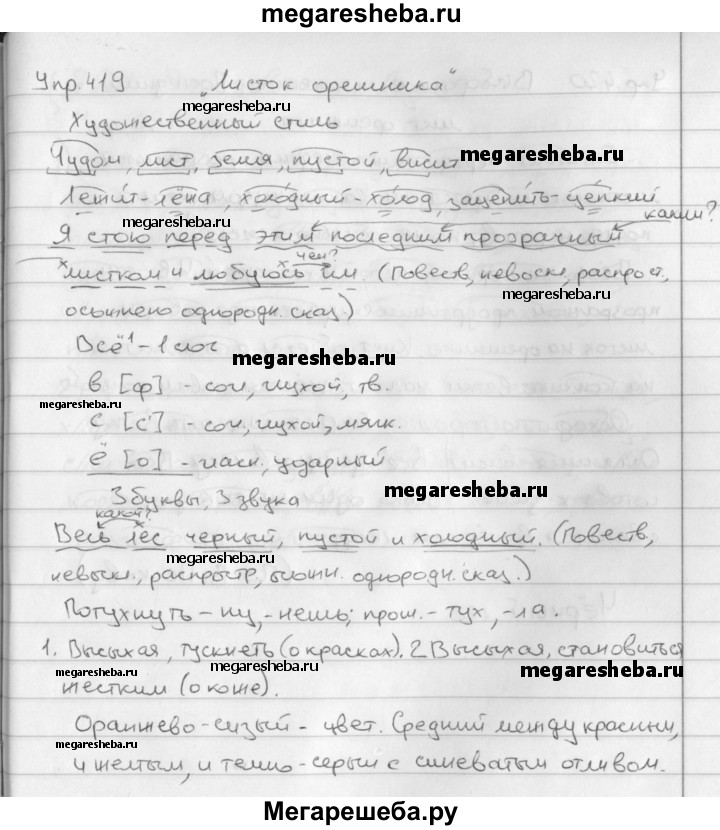 megaresheba.ru
Упр. 419 "Листок орешника"
megaresheba.ru
Художественный стиль
Чудом, лист, земля, пустой, висит
megaresheba.ru
Летит - лёна холодный - холод, зацепить - цепкий
megaresheba.ru
каким?
Я стою перед этим последним прозрачный
чем?
листком и любуюсь им. (Повеств, невоскл, распрост,
megaresheba.ru
осложнено однородн. сказ.)
Всё¹ - 1 слог
megaresheba.ru
в [ф] - сог, глухой, тв.
megaresheba.ru
с [с'] - сог, глухой, мягк.
ё [о] - гласн, ударный
megaresheba.ru
3 буквы, 3 звука
какой?
Весь лес черный, пустой и холодный. (Повеств,
megaresheba.ru
невоскл., распростр, осложн. однородн. сказ.)
Потухнуть - ну, - нешь; прош. - тух, - ла.
1. Высыхая, тускнеть (о красках). 2 Высыхая, становиться
megaresheba.ru megaresheba.ru
жестким (о коже).
Оранжево-сизый - цвет. Средний между красным,
megaresheba.ru
и желтым, и темно-серый с синеватым отливом.
megaresheba.ru megaresheba.ru
Мегарешеба.ру